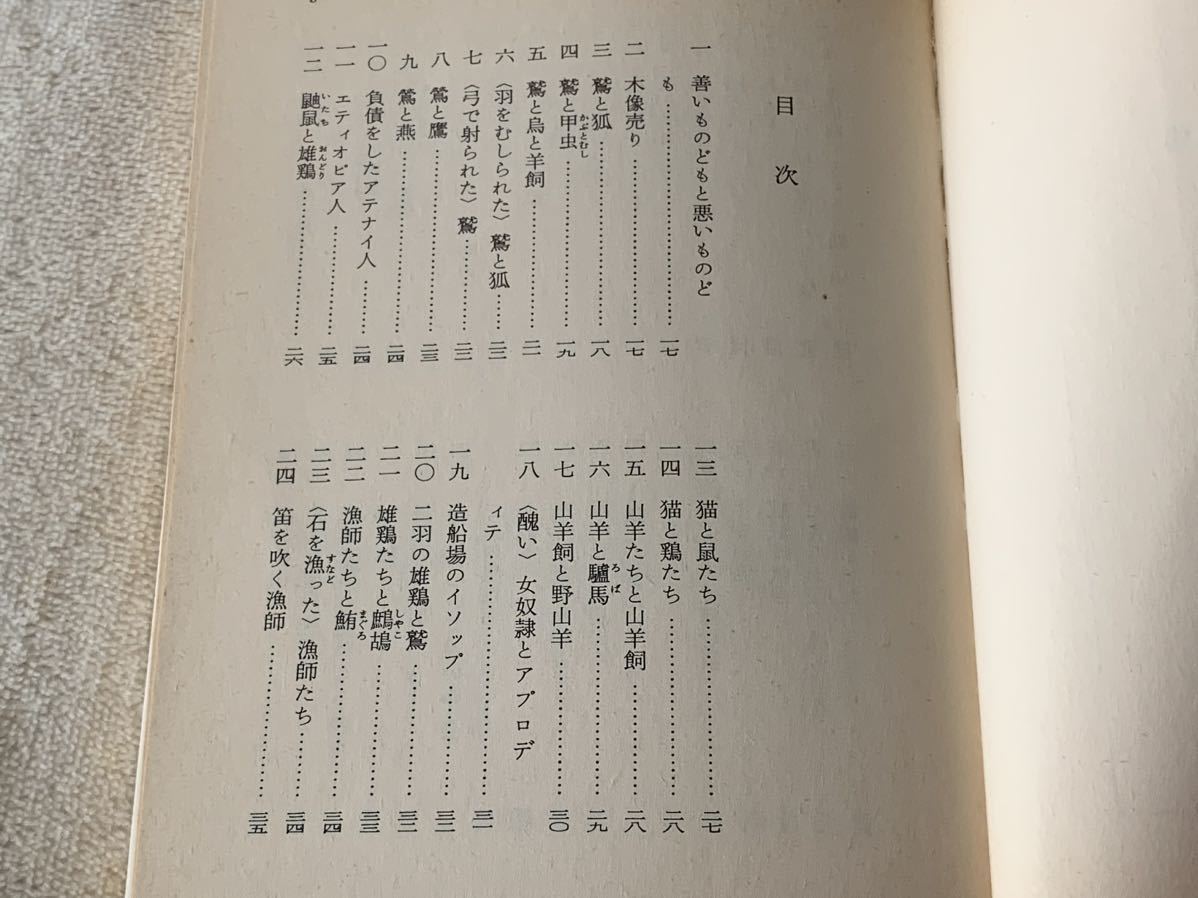 目次
一 善いものどもと悪いものど
も……………………一七
二 木像売り……………………一七
三 鷲と狐……………………一八
四 鷲と甲虫……………………一九
かぶとむし
五 鷲と烏と羊飼……………二一
六 〈羽をむしられた〉鷲と狐……二二
七 〈弓で射られた〉鷲…………二二
八 鶯と鷹……………………二三
九 鶯と燕……………………二四
一〇 負債をしたアテナイ人……二四
一一 エティオピア人……………二五
一二 鼬鼠と雄鶏………………二六
いたち おんどり
一三 猫と鼠たち………………二七
一四 猫と鶏たち………………二八
一五 山羊たちと山羊飼…………二八
一六 山羊と驢馬………………二九
ろば
一七 山羊飼と野山羊……………三〇
一八 〈醜い〉女奴隷とアプロデ
ィテ……………………三一
一九 造船場のイソップ…………三二
二〇 二羽の雄鶏と鷲……………三二
二一 雄鶏たちと鷓鴣……………三三
しやこ
二二 漁師たちと鮪………………三四
まぐろ
二三 〈石を漁った〉漁師たち……三四
すなど
二四 笛を吹く漁師………………三五